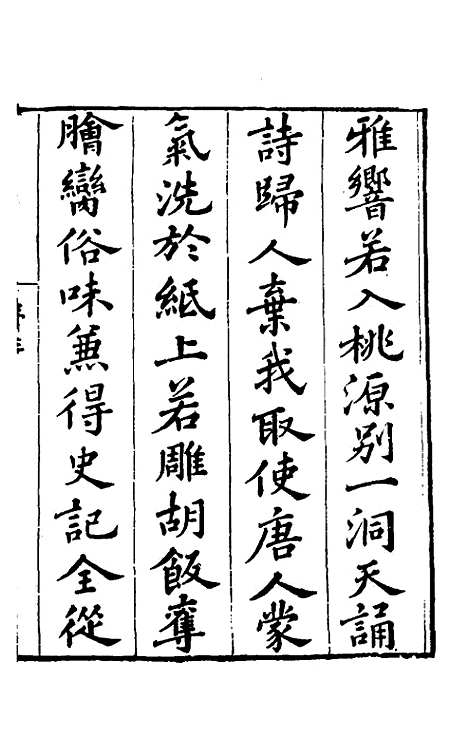 雅響若入桃源別一洞天誦
詩歸人棄我取使唐人蒙
氣洗於紙上若雕胡飯奪
膾臠俗味兼得史記全從